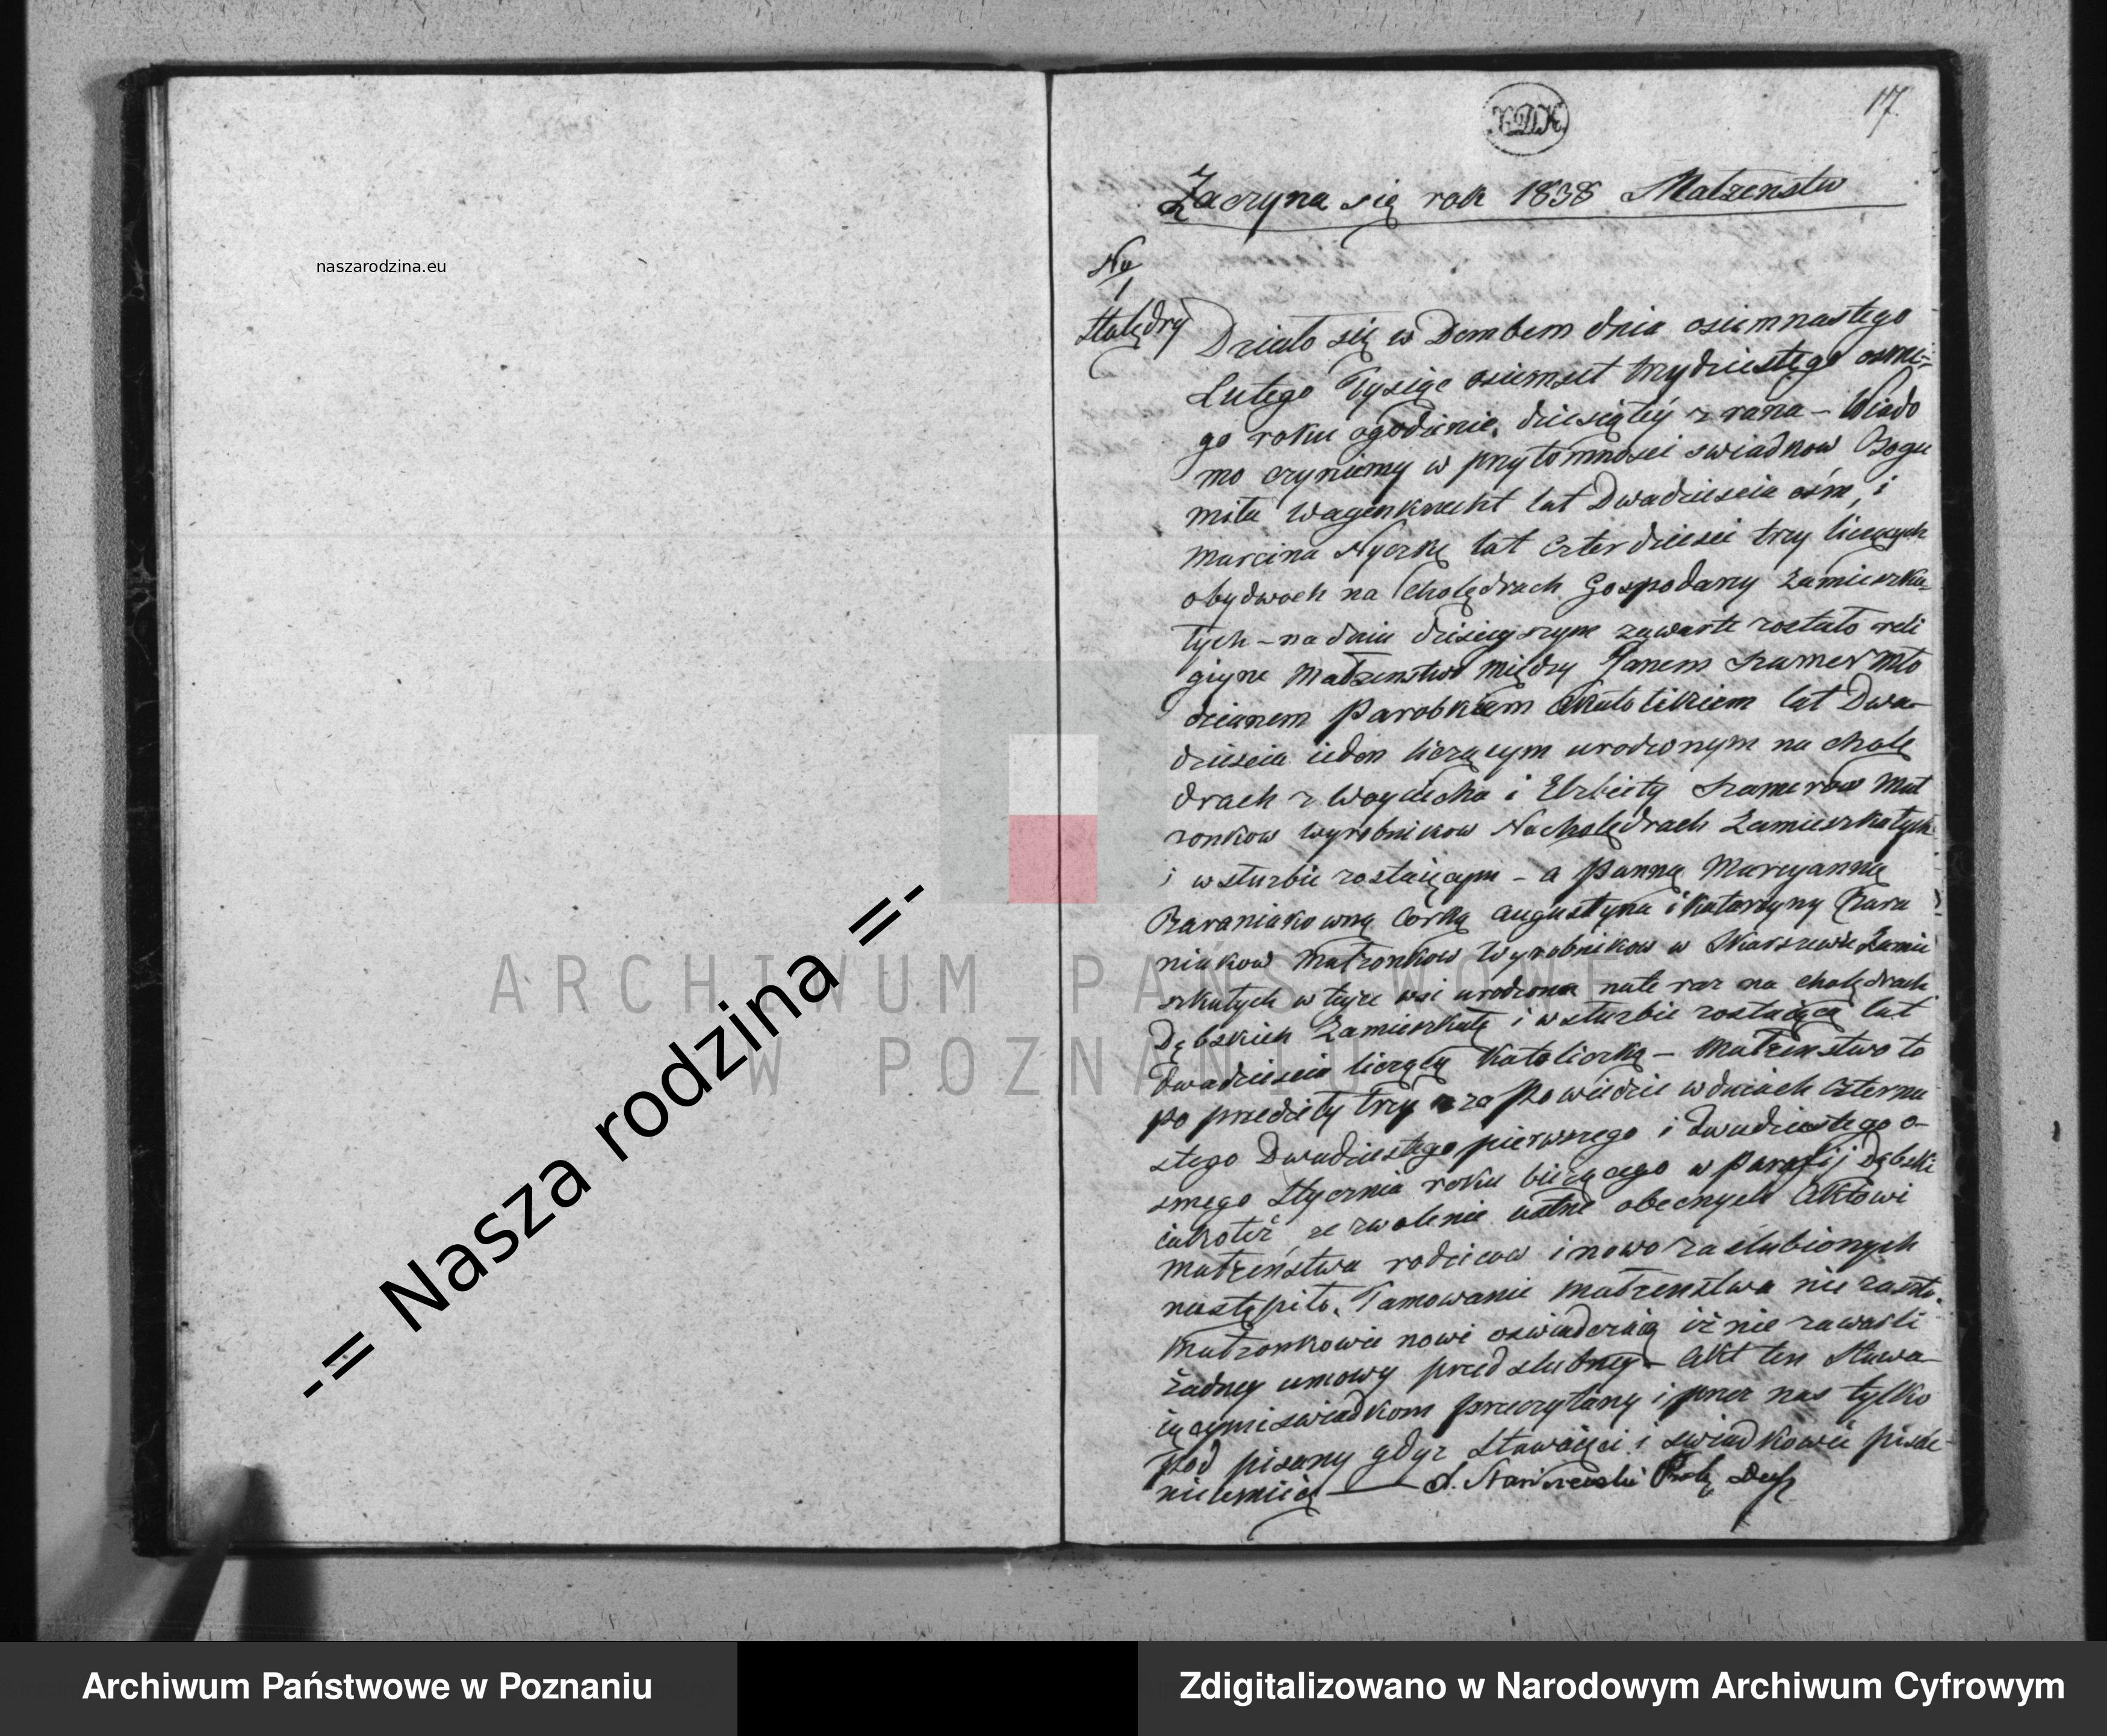 naszarodzina.eu
17.
Zaczyna się rok 1838 Małzenstw
No
1
Holędry
Działo się w Dembem dnia osiemnastego
Lutego Tysiąc osiemset trzydziestego osme-
go roku ogodzinie, dziesiątey z rana – Wiado
mo czyniemy w przytomnosci swiadkow Bogu
miła Wagenknecht lat Dwadziescia ośm, i
Marcina Nyczkę lat czterdziesci trzy liczących
obydwoch na Cholędrach Gospodarzy zamieszka-
łych – na dniu dzisieyszym zawarte zostało reli
giyne Małzenstwo między Janem Szamer Mło
dzianem Parobkiem Katolikiem lat Dwa-
dziescia ieden liczącym urodzonym na cholę
drach z Woyciecha i Elzbiety Szamerow Mał
zonkow wyrobnikow Na cholędrach zamieszkałych
i w słuzbie zostaiącym – a Panną Maryanną
Baraniakowną Corką Augustyna i Katarzyny Bara
niakow Małzonkow Wyrobnikow w Skarszewie zamie
szkałych w teyze wsi urodzona na te raz na cholędrach
Dębskich zamieszkałą i w słuzbie zostaiącą lat
Dwadziescia liczącą Katoliczką – Małzenstwo to
po przedziły trzy zapowiedzie w dniach czterna
stego Dwudziestego pierwszego i Dwudziestego o-
smego Stycznia roku bieżącego w Parafij Dębski
iakoteż, ze zwolenie ustne obecnych Aktowi
Małżeństwa rodzicow i nowo zaslubionych
nastąpiło. Tamowanie Małzenstwa nie zaszło.
Małzonkowie nowi oswiadczaią iż nie zawarli
żadney umowy przedslubney – Akt ten stawa-
iącymi swiadkom przeczytany i przez nas tylko
Pod pisany gdyz stawaiąci i swiadkowie pisać
nieumieią
-= Nasza rodzina =-
ARCHIWUM PAŃSTWOWE
W POZNANIU
Archiwum Państwowe w Poznaniu
Zdigitalizowano w Narodowym Archiwum Cyfrowym